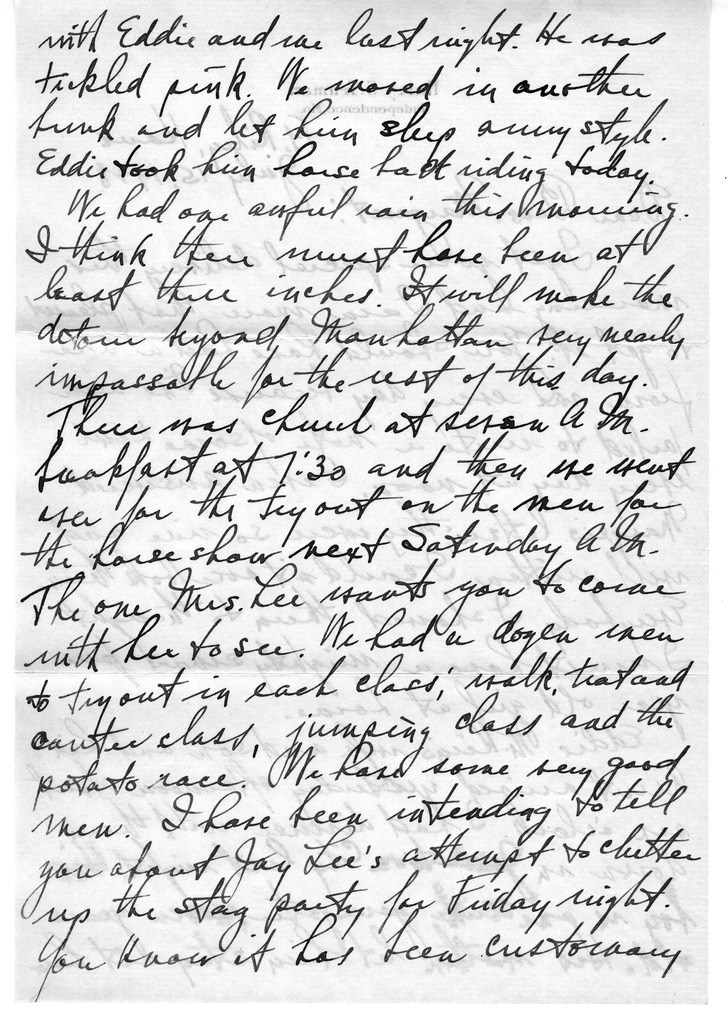 with Eddie and me last night. He was
tickled pink. We moved in another
bunk and let him sleep army style.
Eddie took him horse back riding today.
We had one awful rain this morning.
I think there must have been at
least three inches. It will make the
detour beyond Manhattan very nearly
impassable for the rest of this day.
There was church at seven A.M.
breakfast at 7:30 and then we went
over for the try out on the men for
the horse show next Saturday A.M.
The one Mrs. Lee wants you to come
with her to see. We had a dozen men
to try out in each class; walk, trot and
canter class, jumping class and the
potato race. We have some very good
men. I have been intending to tell
you about Jay Lee's attempt to clutter
up the stag party for Friday night.
You know it has been customary